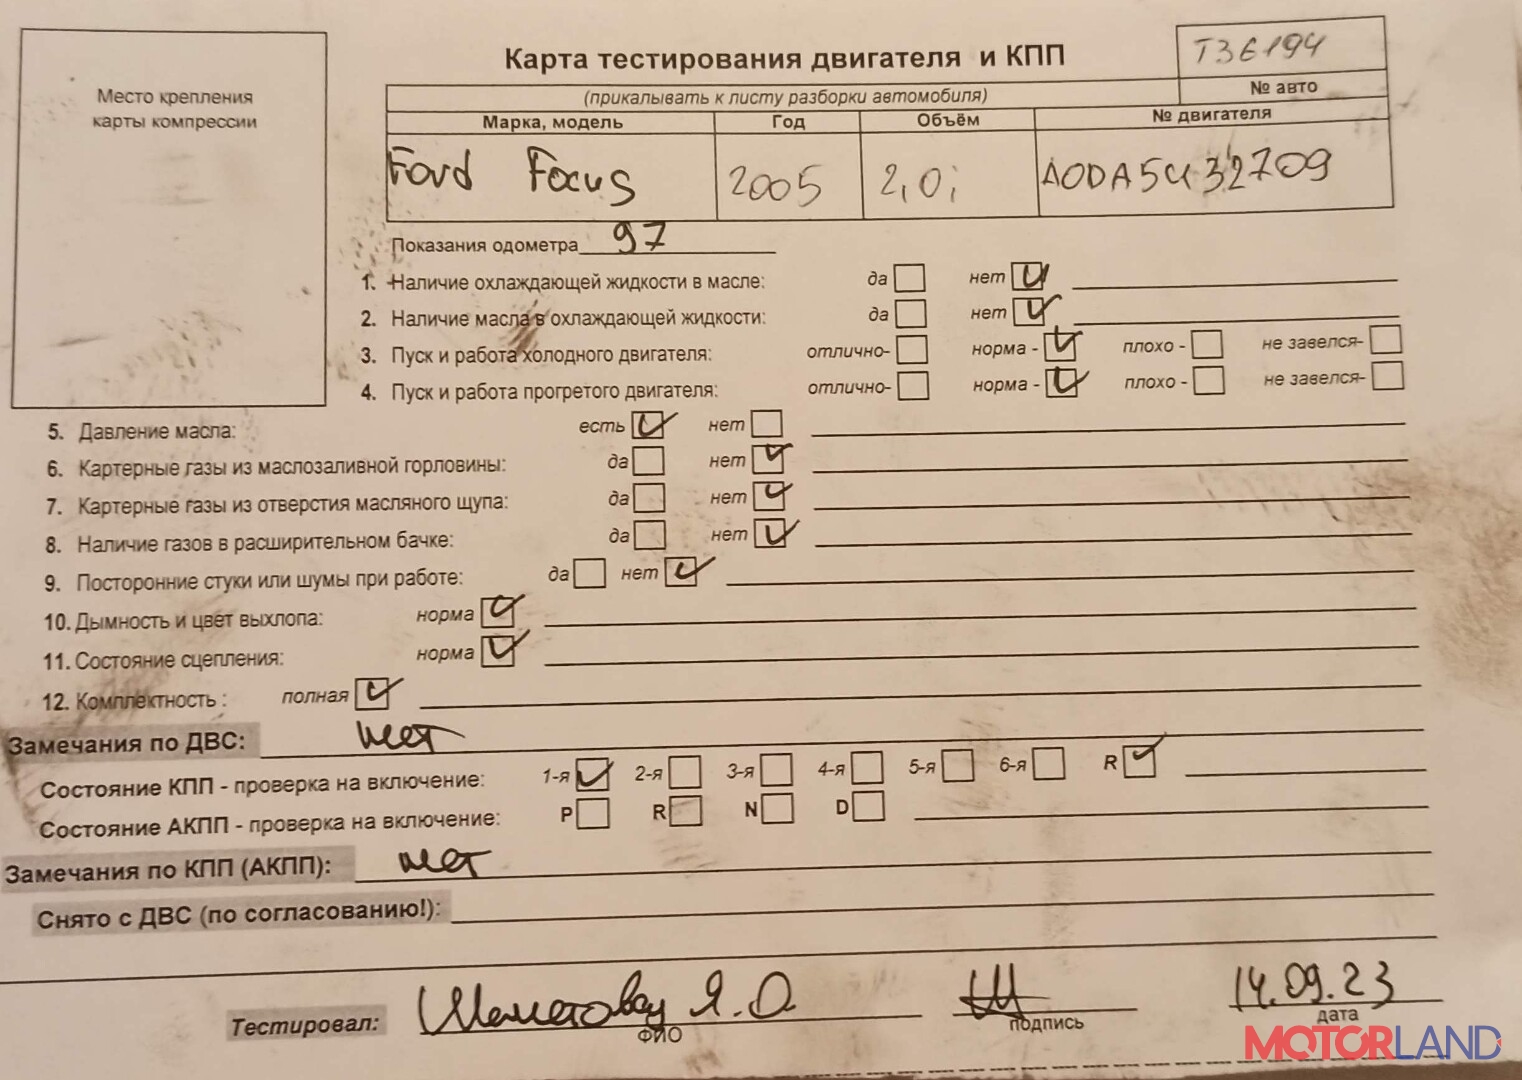 Место крепления
карты компрессии
Карта тестирования двигателя и КПП
T36194
(прикалывать к листу разборки автомобиля)
№ авто
Марка, модель Год Объём № двигателя
Ford Focus 2005 2,0i AODA5U32709
Показания одометра 97
1. Наличие охлаждающей жидкости в масле: да нет
2. Наличие масла в охлаждающей жидкости: да нет
3. Пуск и работа холодного двигателя: отлично- норма - плохо - не завелся-
4. Пуск и работа прогретого двигателя: отлично- норма - плохо - не завелся-
5. Давление масла: есть нет
6. Картерные газы из маслозаливной горловины: да нет
7. Картерные газы из отверстия масляного щупа: да нет
8. Наличие газов в расширительном бачке: да нет
9. Посторонние стуки или шумы при работе: да нет
10. Дымность и цвет выхлопа: норма
11. Состояние сцепления: норма
12. Комплектность : полная
Замечания по ДВС: нет
Состояние КПП - проверка на включение: 1-я 2-я 3-я 4-я 5-я 6-я R
Состояние АКПП - проверка на включение: P R N D
Замечания по КПП (АКПП): нет
Снято с ДВС (по согласованию!):
Тестировал: Я.О. 14.09.23
ФИО подпись дата
MOTORLAND